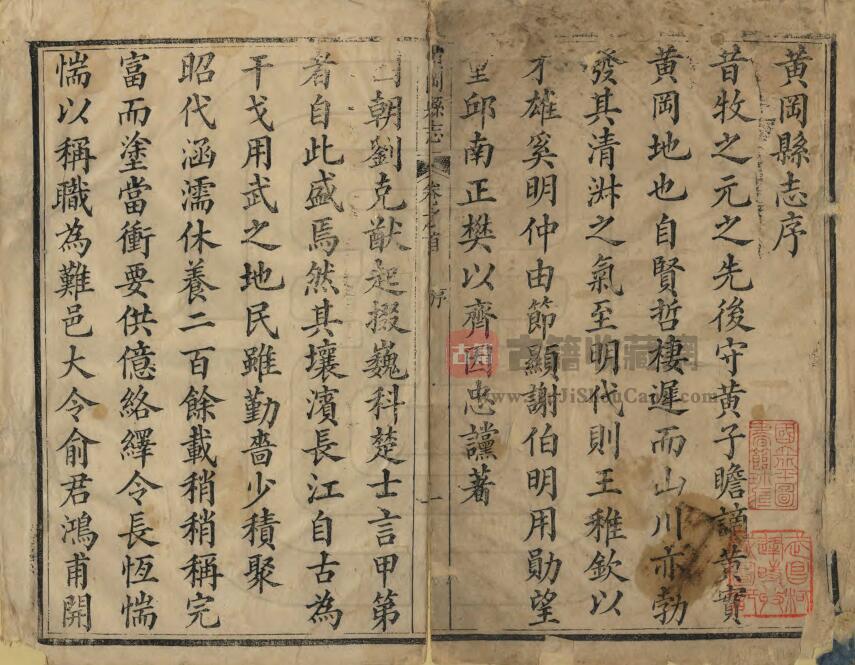 黃岡縣志序
昔牧之元之先後守黃子瞻謫黃實
黃岡地也自賢哲棲遲而山川亦勃
發其清淑之氣至明代則王稚欽以
才雄奚明仲由節顯謝伯明用勛望
邱南正樊以齊因忠讜著
岡縣志
卷之首
序
一
朝劉克猷起掇巍科楚士言甲第
者自此盛焉然其壤濱長江自古為
干戈用武之地民雖勤嗇少積聚
昭代涵濡休養二百餘載稍稍稱完
富而塗當衝要供億絡繹令長恆惴
惴以稱職為難邑大令俞君鴻甫開
古籍收藏網